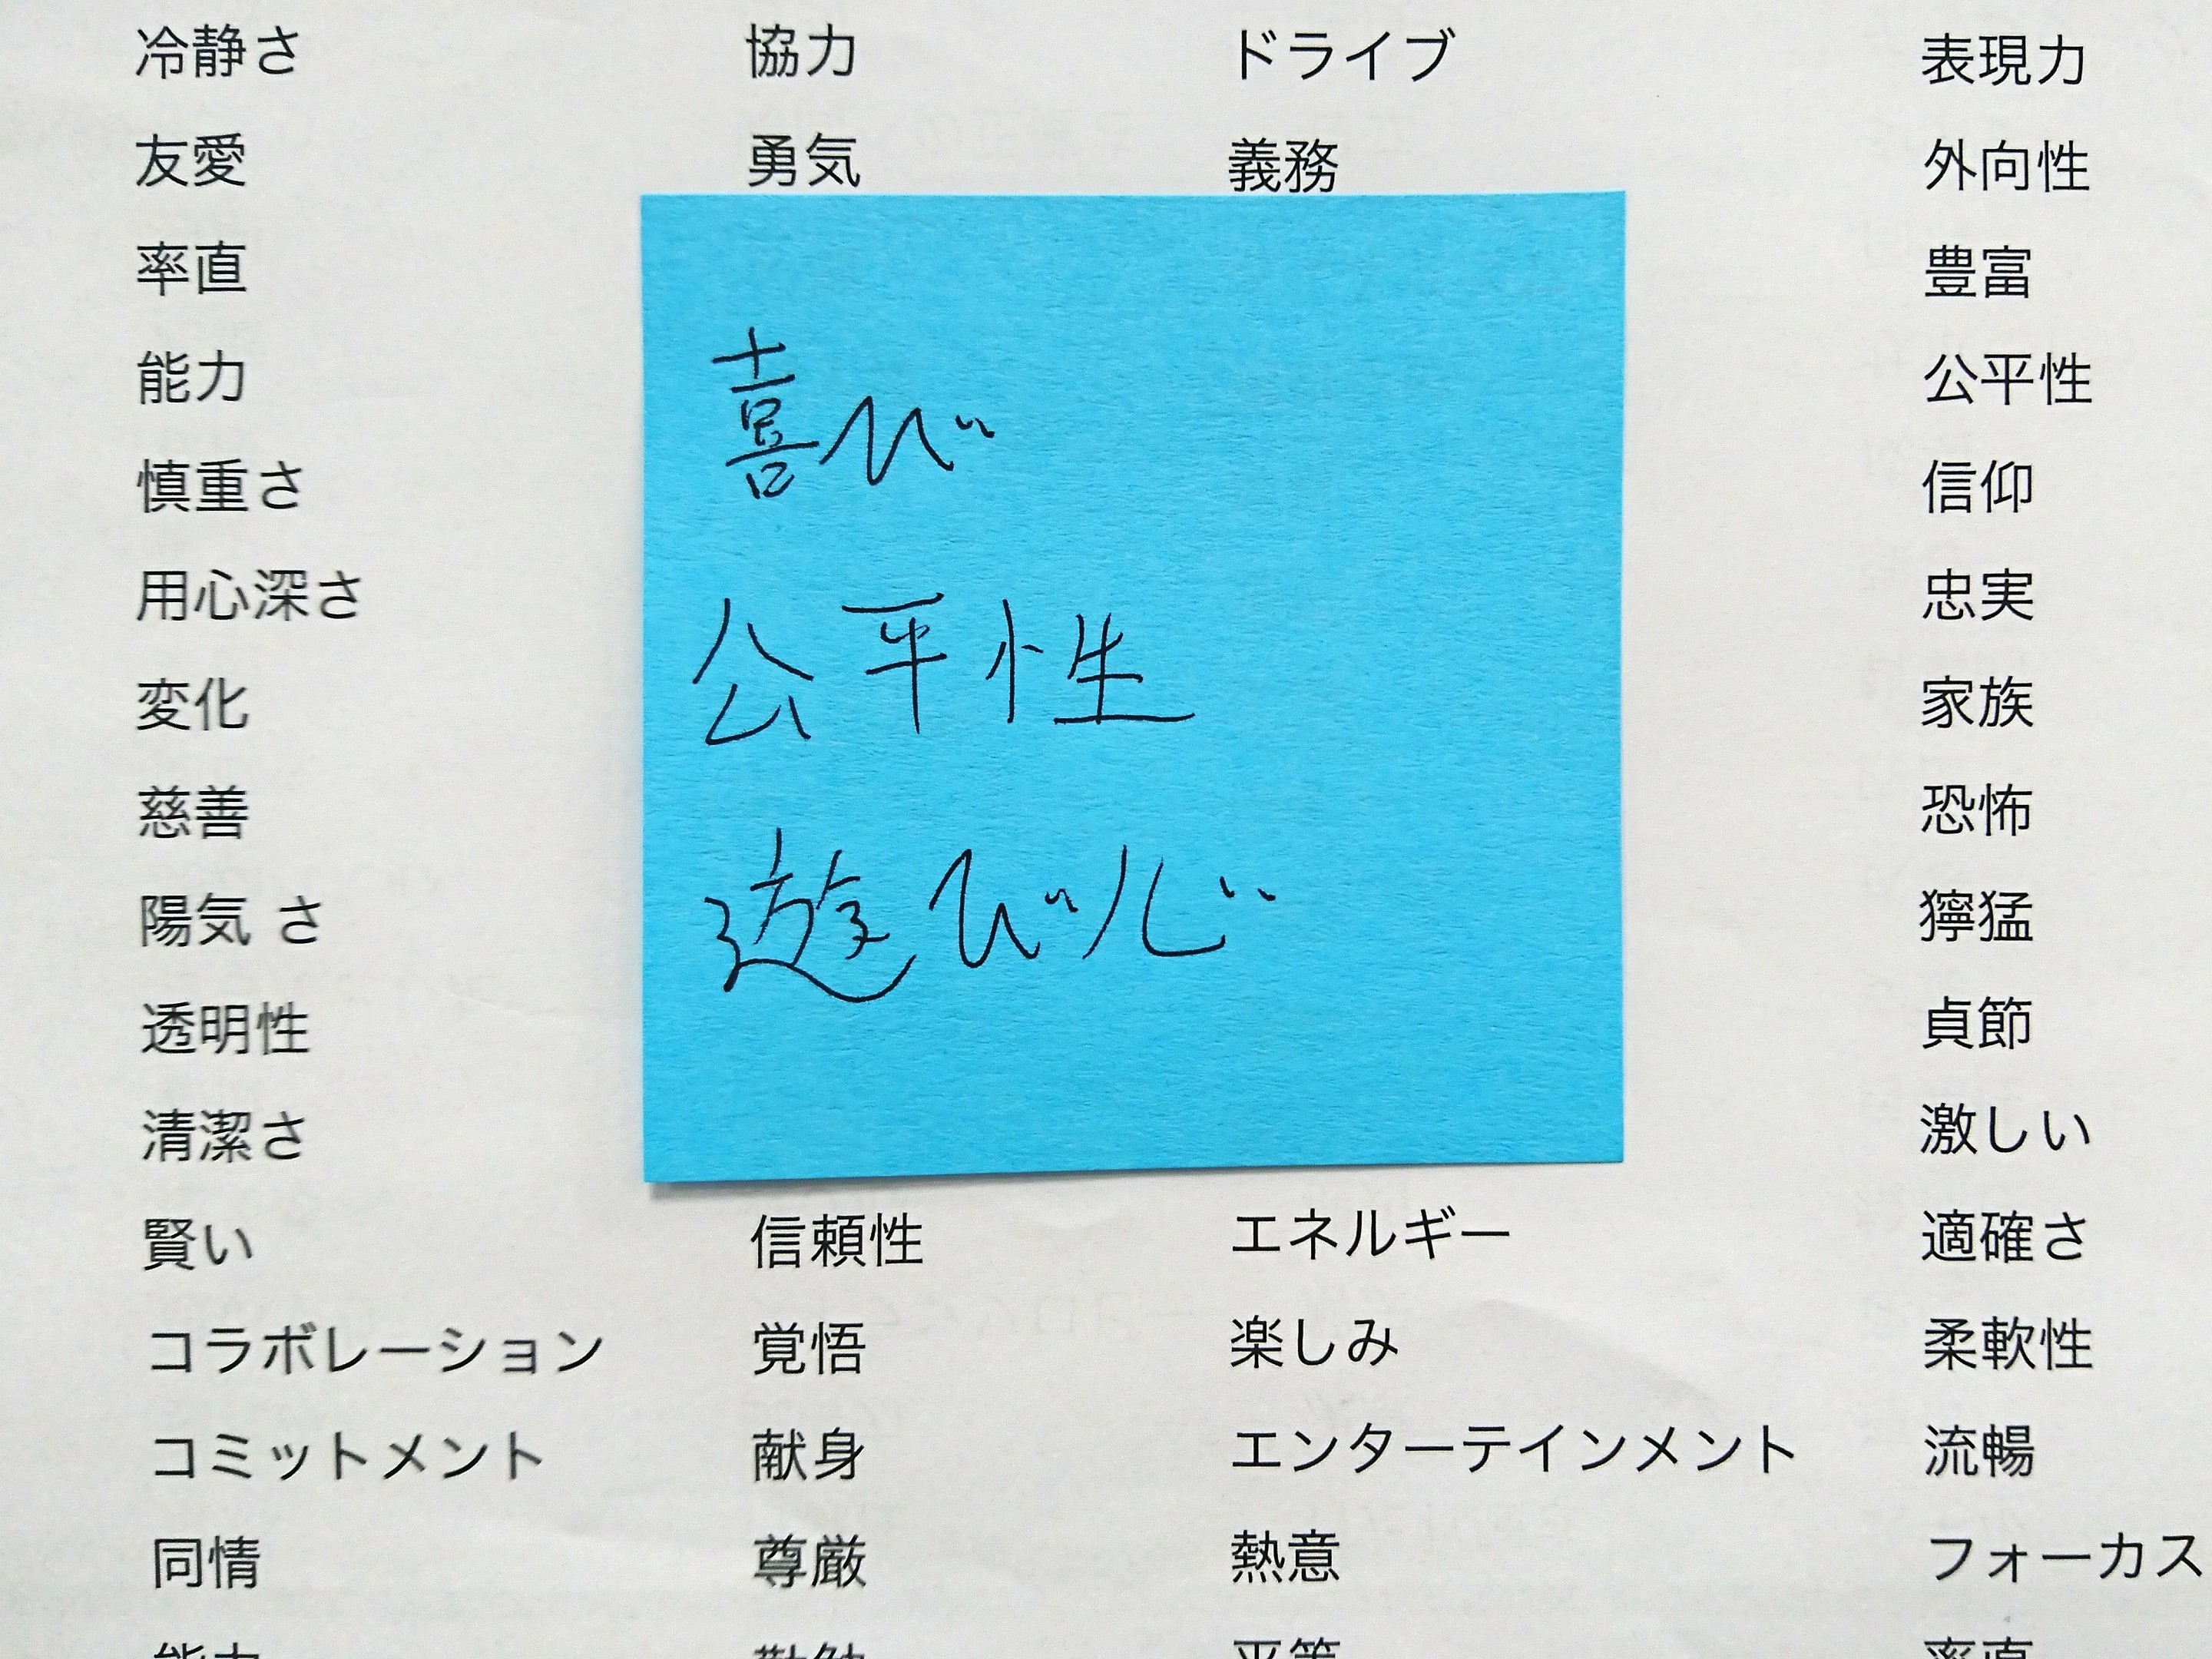 冷静さ
友愛
率直
能力
慎重さ
用心深さ
変化
慈善
陽気 さ
透明性
清潔さ
賢い
コラボレーション
コミットメント
同情
能力
協力
勇気
喜び
公平性
遊び心
信頼性
覚悟
献身
尊厳
勤勉
ドライブ
義務
エネルギー
楽しみ
エンターテインメント
熱意
平等
表現力
外向性
豊富
公平性
信仰
忠実
家族
恐怖
獰猛
貞節
激しい
適確さ
柔軟性
流暢
フォーカス
率直